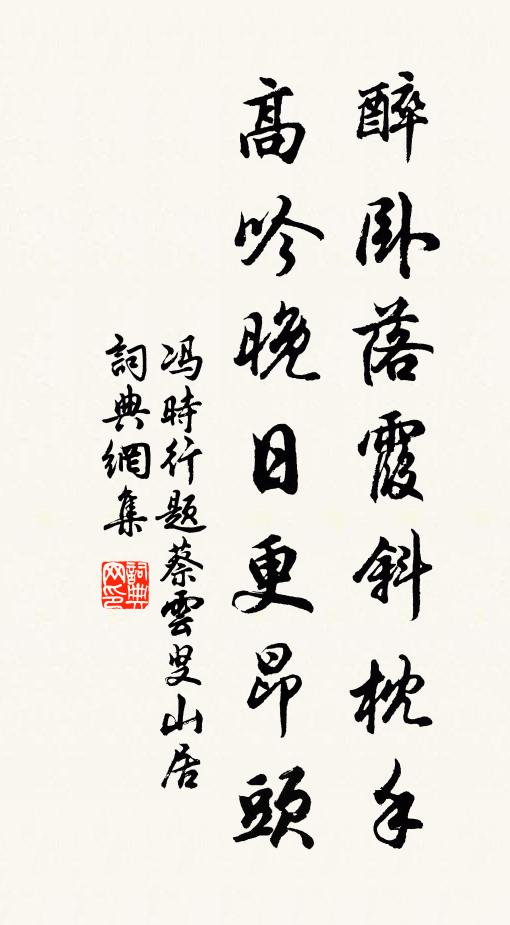 醉卧落霞斜枕手
高吟晚日更昂頭
冯時行題蔡雲叟山居
詞典網集
詞典网印